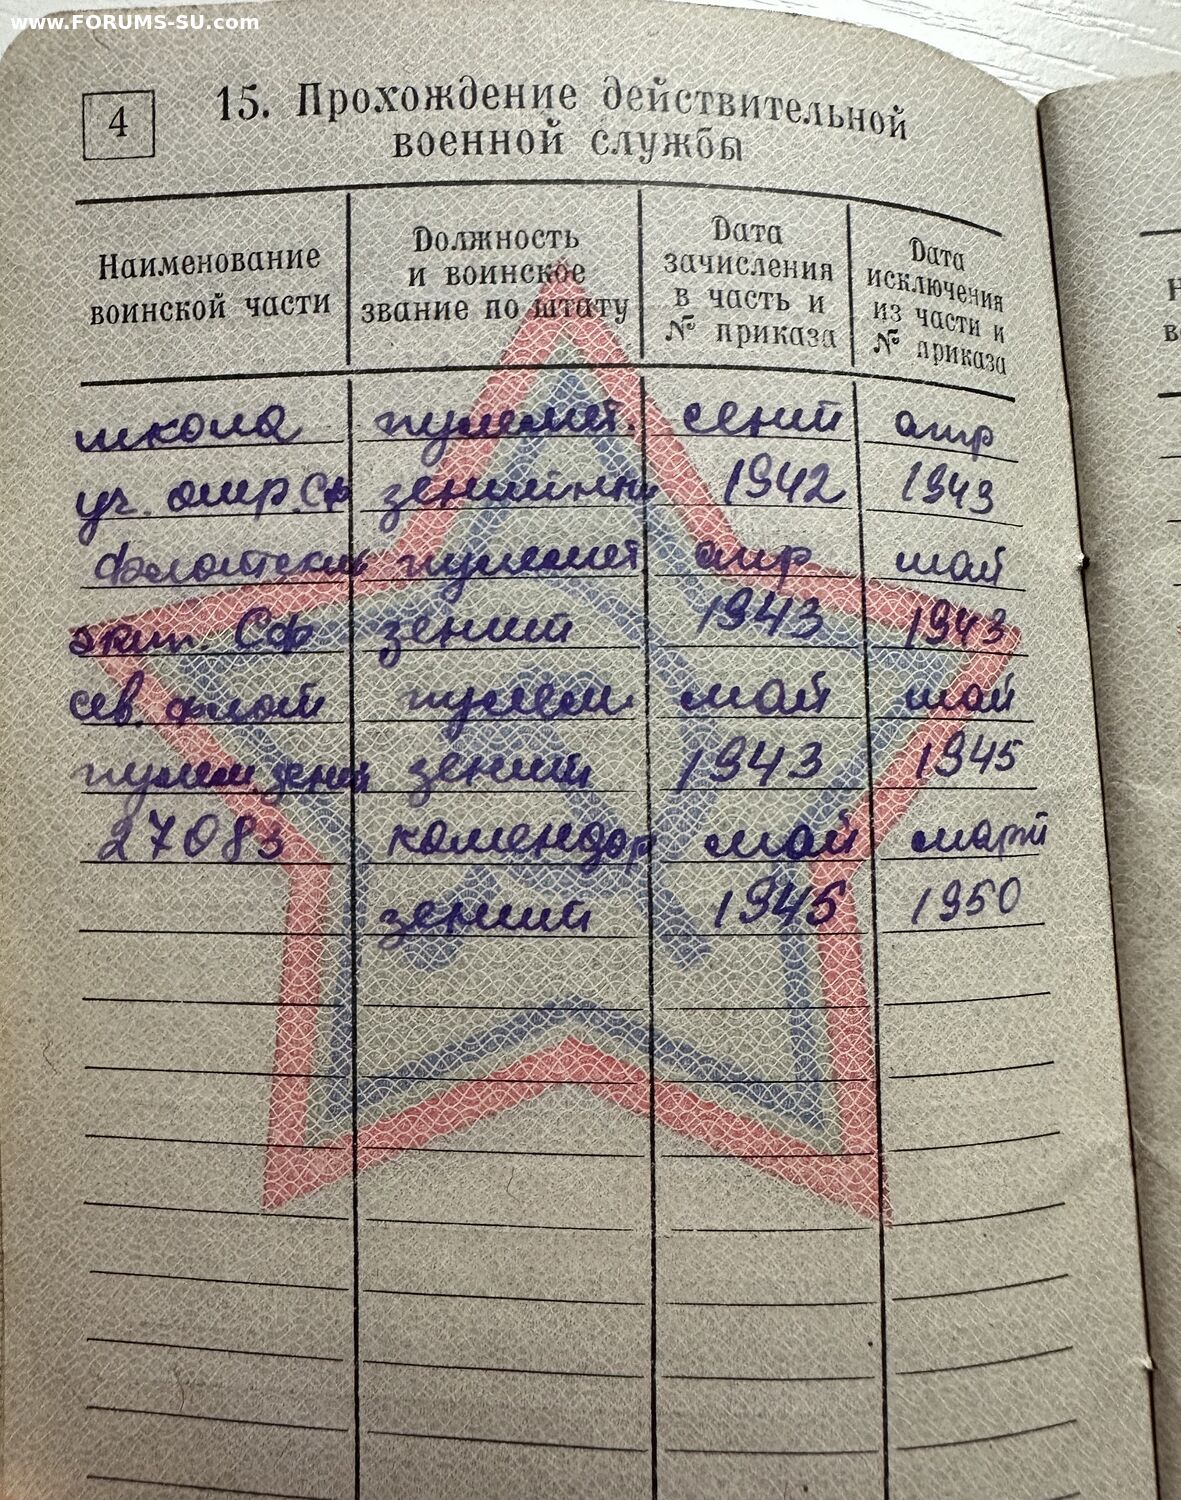 www.FORUMS-SU.com
4
15. Прохождение действительной
военной службы
Наименование
воинской части
Должность
и воинское
звание по штату
Дата
зачисления
в часть и
№ приказа
Дата
исключения
из части и
№ приказа
школа пулемет. сент апр
уч. отр. Сф зенитчик 1942 1943
флотский пулемет апр май
экип. Сф зенит 1943 1943
сев. флот пулем. май май
пулем. зенит зенит 1943 1945
27083 комендор май март
зенит 1945 1950